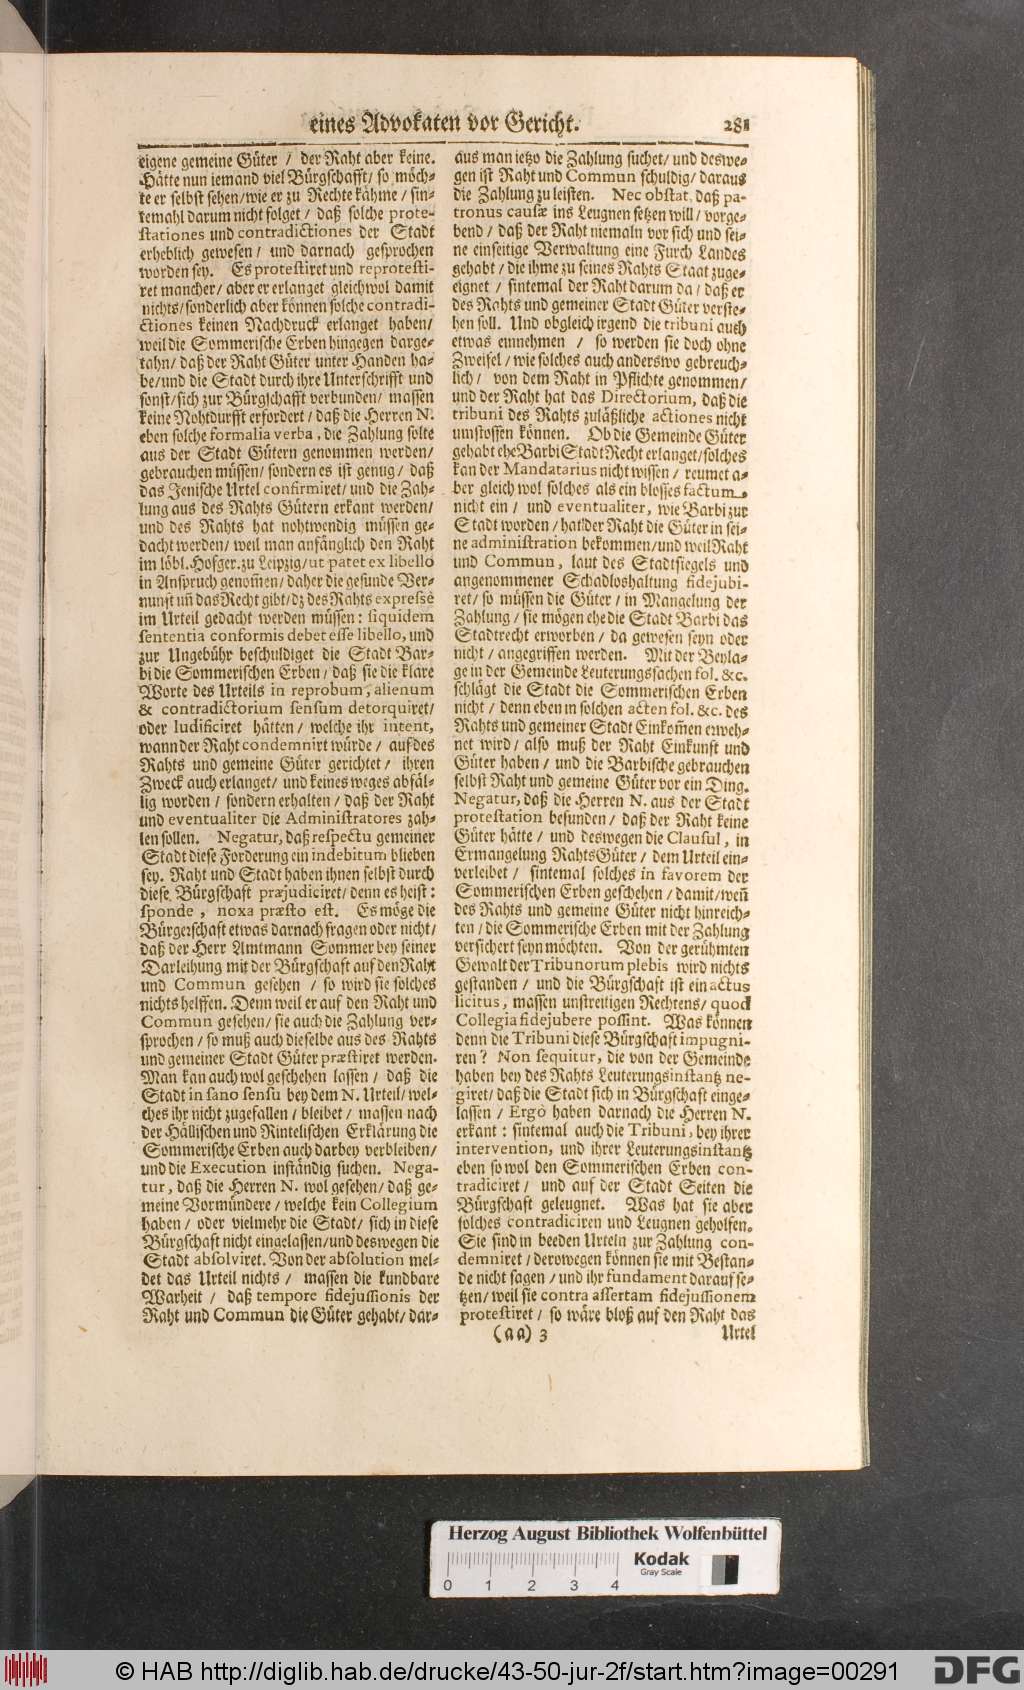 eines Advokaten vor Gericht. 281
eigene gemeine Güter / der Raht aber keine.
Hätte nun iemand viel Bürgschafft/ so möch-
te er selbst sehen/wie er zu Rechte kähme / sin-
temahl darum nicht folget / daß solche prote-
stationes und contradictiones der Stadt
erheblich gewesen / und darnach gesprochen
worden sey. Es protestiret und reprotesti-
ret mancher/ aber er erlanget gleichwol damit
nichts/sonderlich aber können solche contradi-
ctiones keinen Nachdruck erlanget haben/
weil die Sommerische Erben hingegen darge-
tahn/ daß der Raht Güter unter Handen ha-
be/und die Stadt durch ihre Unterschrifft und
sonst/sich zur Bürgschafft verbunden/ massen
keine Nohtdurfft erfordert / daß die Herren N.
eben solche formalia verba, die Zahlung solte
aus der Stadt Gütern genommen werden/
gebrauchen müssen/ sondern es ist genug / daß
das Jenische Urtel confirmiret/ und die Zah-
lung aus des Rahts Gütern erkant werden/
und des Rahts hat nohtwendig müssen ge-
dacht werden/ weil man anfänglich den Raht
im löbl. Hofger. zu Leipzig/ut patet ex libello
in Anspruch genom̃en/ daher die gesunde Ver-
nunft uñ das Recht gibt/dz des Rahts expressè
im Urteil gedacht werden müssen: siquidem
sententia conformis debet esse libello, und
zur Ungebühr beschuldiget die Stadt Bar-
bi die Sommerischen Erben/ daß sie die klare
Worte des Urteils in reprobum, alienum
& contradictorium sensum detorquiret/
oder ludificiret hätten / welche ihr intent,
wann der Raht condemnirt würde / auf des
Rahts und gemeine Güter gerichtet / ihren
Zweck auch erlanget/ und keines weges abfäl-
lig worden / sondern erhalten / daß der Raht
und eventualiter die Administratores zah-
len sollen. Negatur, daß respectu gemeiner
Stadt diese Forderung ein indebitum blieben
sey. Raht und Stadt haben ihnen selbst durch
diese Bürgschaft præjudiciret/ denn es heist:
sponde, noxa præsto est. Es möge die
Bürgerschaft etwas darnach fragen oder nicht/
daß der Herr Amtmann Sommer bey seiner
Darleihung mit der Bürgschaft auf den Raht
und Commun gesehen / so wird sie solches
nichts helffen. Denn weil er auf den Raht und
Commun gesehen/ sie auch die Zahlung ver-
sprochen / so muß auch dieselbe aus des Rahts
und gemeiner Stadt Güter præstiret werden.
Man kan auch wol geschehen lassen / daß die
Stadt in sano sensu bey dem N. Urteil/ wel-
ches ihr nicht zugefallen / bleibet / massen nach
der Hällischen und Rintelischen Erklärung die
Sommerische Erben auch darbey verbleiben/
und die Execution inständig suchen. Nega-
tur, daß die Herren N. wol gesehen/ daß ge-
meine Vormündere / welche kein Collegium
haben / oder vielmehr die Stadt/ sich in diese
Bürgschaft nicht eingelassen/und deswegen die
Stadt absolviret. Von der absolution mel-
det das Urteil nichts / massen die kundbare
Warheit / daß tempore fidejussionis der
Raht und Commun die Güter gehabt/ dar-
aus man ietzo die Zahlung suchet/ und deswe-
gen ist Raht und Commun schuldig/ daraus
die Zahlung zu leisten. Nec obstat, daß pa-
tronus causæ ins Leugnen setzen will/ vorge-
bend / daß der Raht niemaln vor sich und sei-
ne einseitige Verwaltung eine Furch Landes
gehabt / die ihme zu seines Rahts Staat zuge-
eignet / sintemal der Raht darum da / daß er
des Rahts und gemeiner Stadt Güter verste-
hen soll. Und obgleich irgend die tribuni auch
etwas einnehmen / so werden sie doch ohne
Zweifel / wie solches auch anderswo gebreuch-
lich/ von dem Raht in Pflichte genommen/
und der Raht hat das Directorium, daß die
tribuni des Rahts zuläßliche actiones nicht
umstossen können. Ob die Gemeinde Güter
gehabt ehe Barbi StadtRecht erlanget/solches
kan der Mandatarius nicht wissen / reumet a-
ber gleich wol solches als ein blosses factum
nicht ein / und eventualiter, wie Barbi zur
Stadt worden / hat der Raht die Güter in sei-
ne administration bekommen/und weil Raht
und Commun, laut des Stadtsiegels und
angenommener Schadloshaltung fidejubi-
ret/ so müssen die Güter / in Mangelung der
Zahlung / sie mögen ehe die Stadt Barbi das
Stadtrecht erworben / da gewesen seyn oder
nicht / angegriffen werden. Mit der Beyla-
ge in der Gemeinde Leuterungssachen fol. &c.
schlägt die Stadt die Sommerischen Erben
nicht / denn eben in solchen acten fol. &c. des
Rahts und gemeiner Stadt Einkom̃en erweh-
net wird / also muß der Raht Einkunft und
Güter haben / und die Barbische gebrauchen
selbst Raht und gemeine Güter vor ein Ding.
Negatur, daß die Herren N. aus der Stadt
protestation befunden / daß der Raht keine
Güter hätte / und deswegen die Clausul, in
Ermangelung RahtsGüter / dem Urteil ein-
verleibet / sintemal solches in favorem der
Sommerischen Erben geschehen / damit/ weñ
des Rahts und gemeine Güter nicht hinreich-
ten / die Sommerische Erben mit der Zahlung
versichert seyn möchten. Von der gerühmten
Gewalt der Tribunorum plebis wird nichts
gestanden / und die Bürgschaft ist ein actus
licitus, massen unstreitigen Rechtens/ quod
Collegia fidejubere possint. Was können
denn die Tribuni diese Bürgschaft impugni-
ren? Non sequitur, die von der Gemeinde
haben bey des Rahts Leuterungsinstantz ne-
giret/ daß die Stadt sich in Bürgschaft einge-
lassen / Ergò haben darnach die Herren N.
erkant: sintemal auch die Tribuni, bey ihrer
intervention, und ihrer Leuterungsinstantz
eben so wol den Sommerischen Erben con-
tradiciret / und auf der Stadt Seiten die
Bürgschaft geleugnet. Was hat sie aber
solches contradiciren und Leugnen geholfen.
Sie sind in beeden Urteln zur Zahlung con-
demniret/ derowegen können sie mit Bestan-
de nicht sagen / und ihr fundament darauf se-
tzen/ weil sie contra assertam fidejussionem
protestiret / so wäre bloß auf den Raht das
(aa) 3 Urtel
Herzog August Bibliothek Wolfenbüttel
Kodak
Gray Scale
0 1 2 3 4
© HAB http://diglib.hab.de/drucke/43-50-jur-2f/start.htm?image=00291 DFG